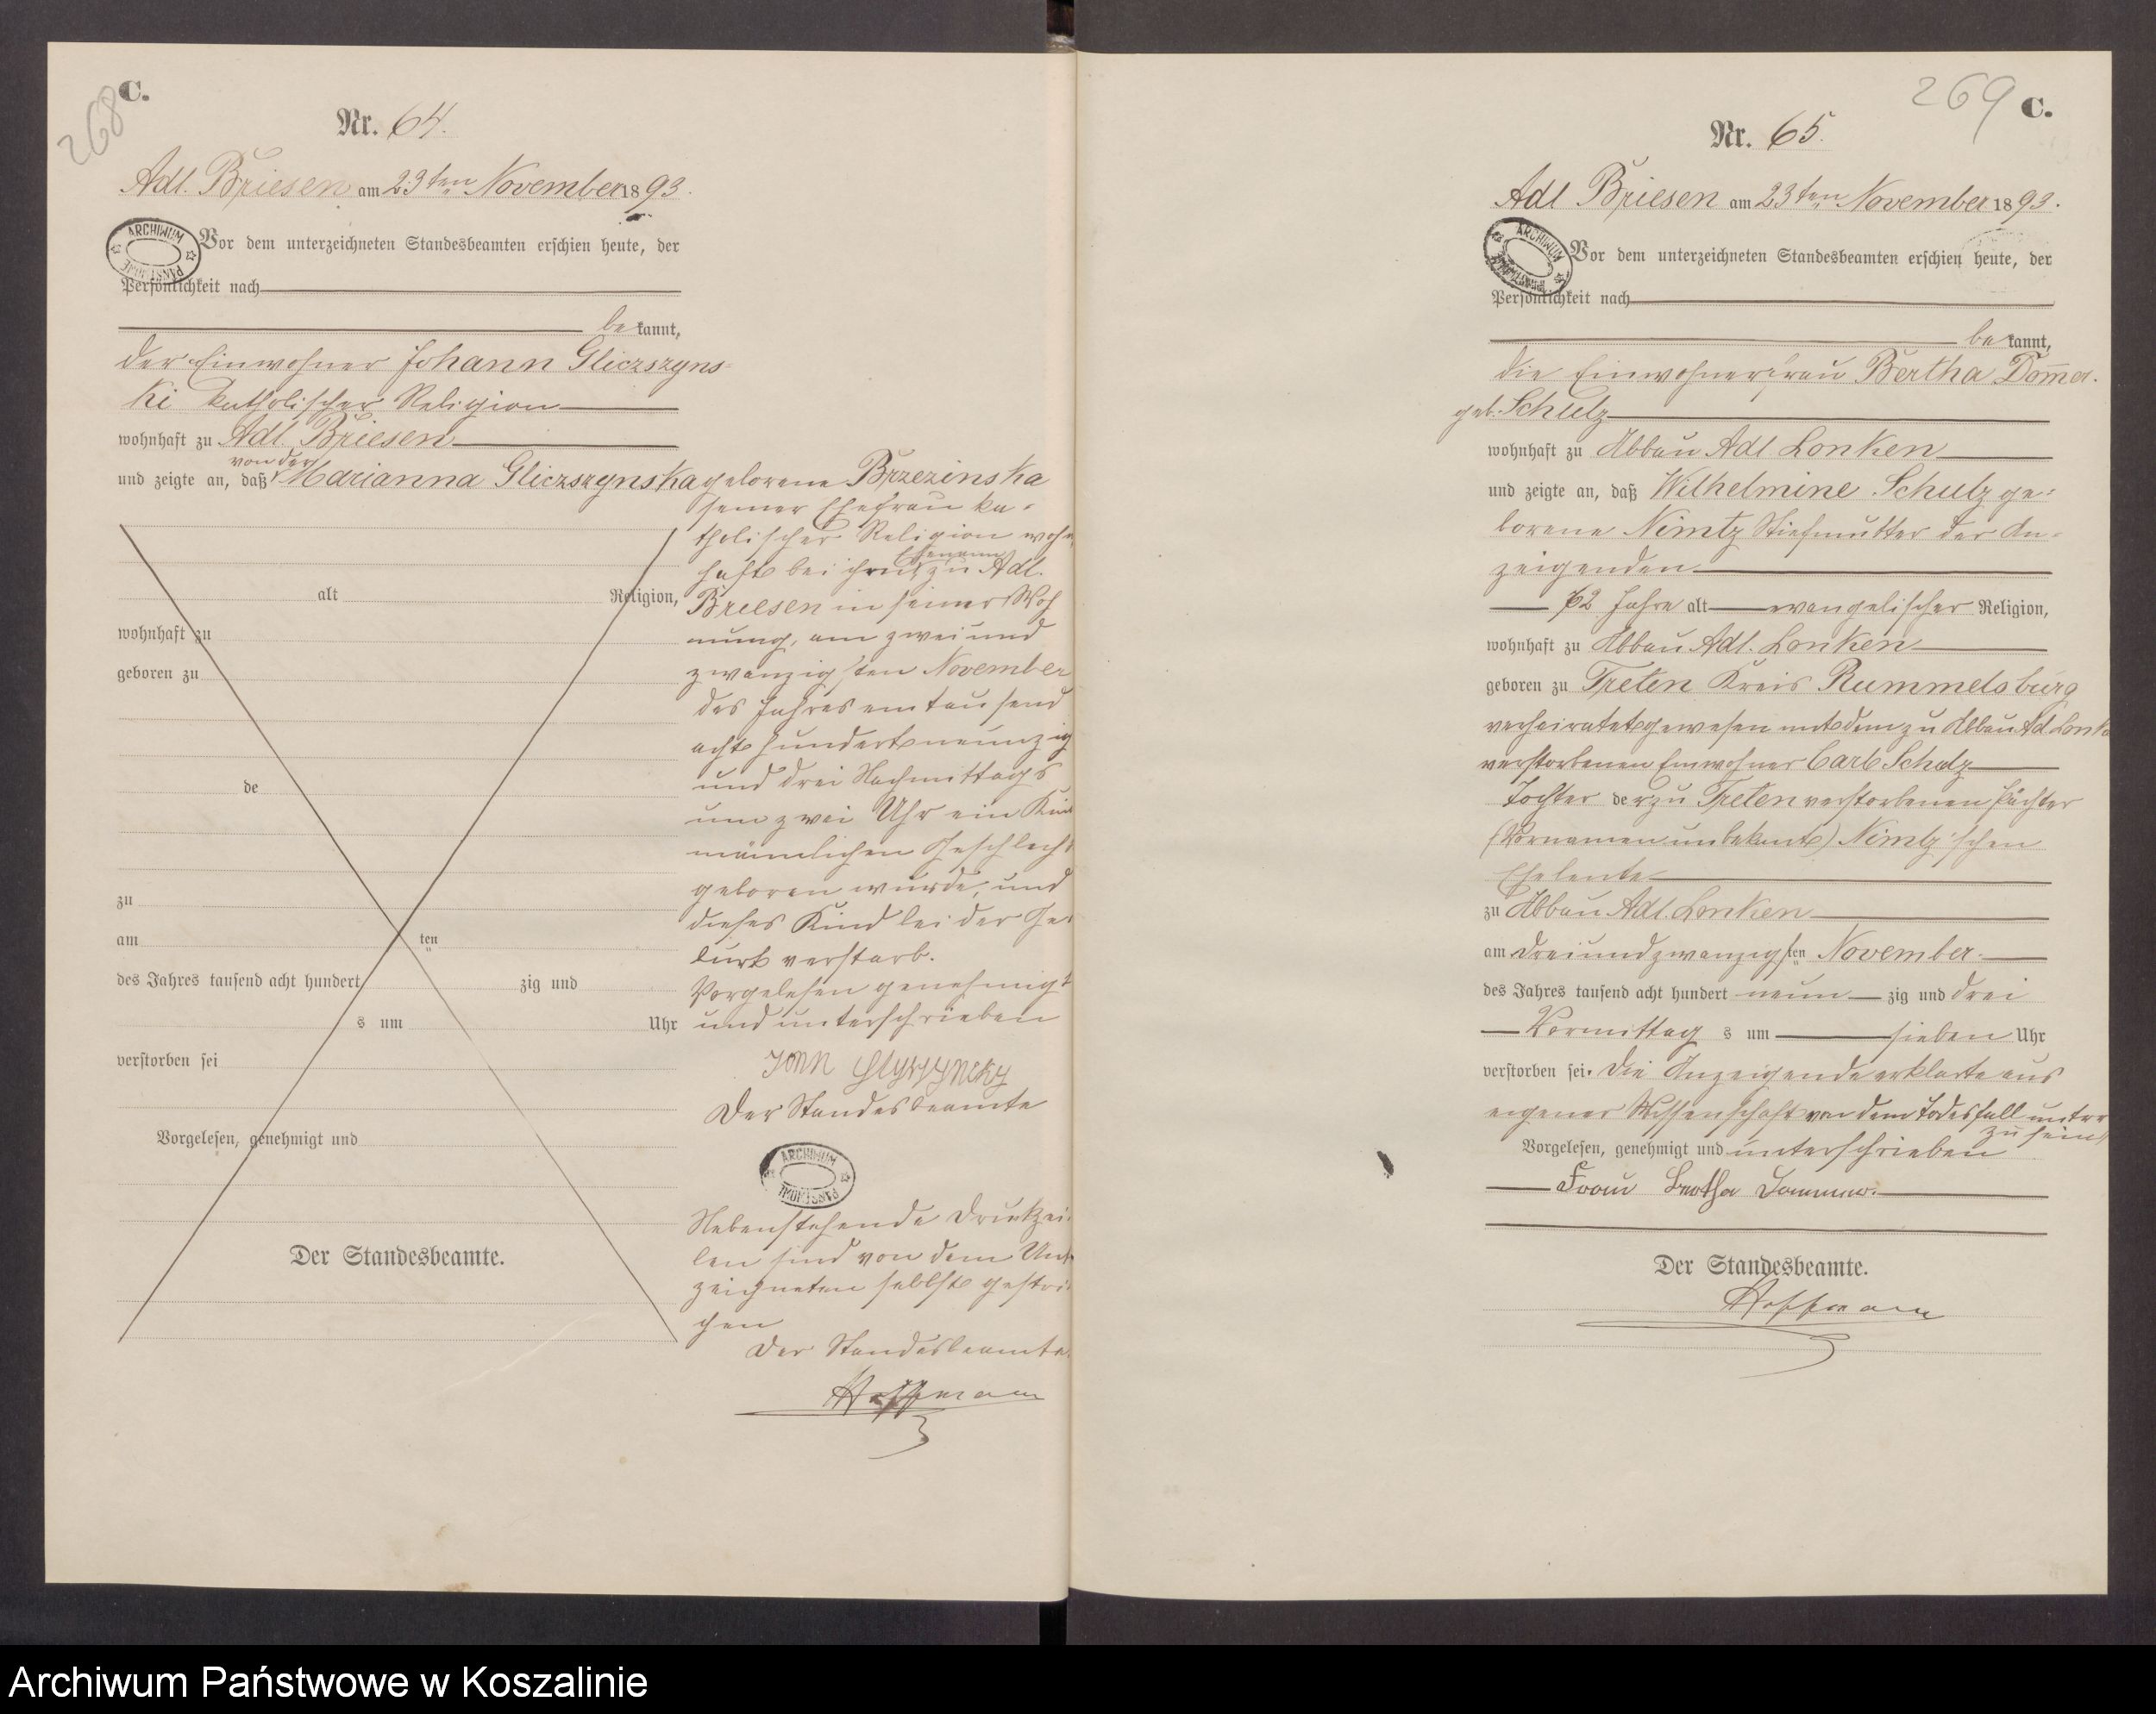 268
C.
Nr. 64.
Adl. Briesen am 23ten November 1893.
ARCHIWUM PAŃSTWOWE
Vor dem unterzeichneten Standesbeamten erschien heute, der
Persönlichkeit nach
bekannt,
der Einwohner Johann Gliczszyns-
ki katholischer Religion
wohnhaft zu Adl. Briesen
von der
und zeigte an, daß Marianna Gliczszynska geborene Brzezinska
seiner Ehefrau ka-
tholischer Religion wohn
Ehemann
haft bei ihrem zu Adl.
Briesen in seiner Woh
nung, am zwei und
zwanzigsten November
des Jahres ein tausend
acht hundert neunzig
und drei Nachmittags
um zwei Uhr ein Kind
männlichen Geschlechts
geboren wurde, und
dieses Kind bei der Ge-
burt verstarb.
Vorgelesen genehmigt
und unterschrieben
Der Standesbeamte
ARCHIWUM PAŃSTWOWE
Nebenstehende Druckzei-
len sind von dem Unter
zeichneten selbst gestri-
chen
Der Standesbeamte.
Hoffmann
alt Religion,
wohnhaft zu
geboren zu
de
zu
am ten
des Jahres tausend acht hundert zig und
s um Uhr
verstorben sei
Vorgelesen, genehmigt und
Der Standesbeamte.
269
C.
Nr. 65.
Adl Briesen am 23ten November 1893.
ARCHIWUM PAŃSTWOWE
Vor dem unterzeichneten Standesbeamten erschien heute, der
Persönlichkeit nach
bekannt,
die Einwohnerfrau Bertha Dom̄er.
geb. Schulz
wohnhaft zu Abbau Adl Lonken
und zeigte an, daß Wilhelmine Schulz ge-
borene Nimtz Stiefmutter der An-
zeigenden
62 Jahre alt evangelischer Religion,
wohnhaft zu Abbau Adl. Lonken
geboren zu Treten Kreis Rummelsburg
verheiratet gewesen mit dem zu Abbau Adl. Lonken
verstorbenen Einwohner Carl Schulz
Tochter der zu Treten verstorbenen Pächter
(Vornamen unbekannt) Nimtz'schen
Eheleute
zu Abbau Adl. Lonken
am dreiundzwanzigsten November
des Jahres tausend acht hundert neunzig und drei
Vormittags um sieben Uhr
verstorben sei. Die Anzeigende erklärte aus
eigener Wissenschaft von dem Todesfall unter
zu sein
Vorgelesen, genehmigt und unterschrieben
Frau Bertha Dommer.
Der Standesbeamte.
Hoffmann
Archiwum Państwowe w Koszalinie